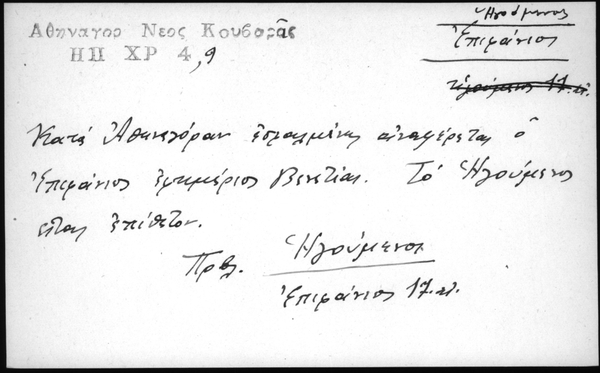 Αθηναγορ Νεος Κουβαρᾶς
ΗΠ ΧΡ 4,9
Ἡγούμενος
Ἐπιφάνιος
Ἡγούμενος 17. αἰ.
Κατὰ Ἀθηναγόραν ἐσφαλμένως ἀναφέρεται ὁ
Ἐπιφάνιος ἐφημέριος Βενετίας. Τὸ Ἡγούμενος
εἶναι ἐπίθετον.
Πρβλ. Ἡγούμενος
Ἐπιφάνιος 17. αἰ.